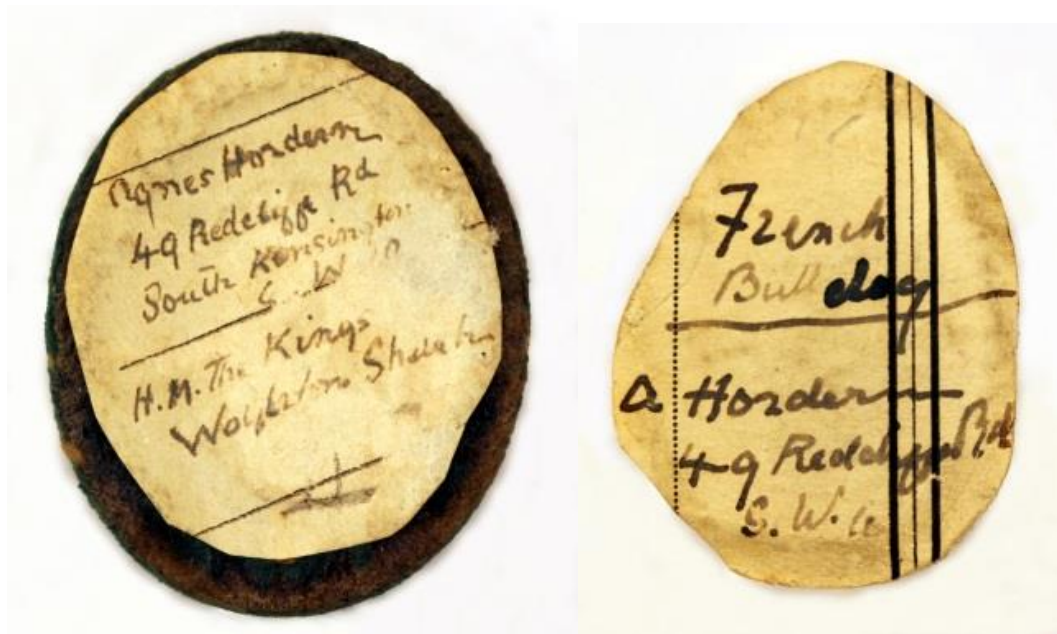 Agnes Hordern
49 Redcliffe Rd
South Kensington
S.W. 10
H.M. The Kings
French
Bull dog
A Hordern
49 Redcliffe Rd
S.W. 10